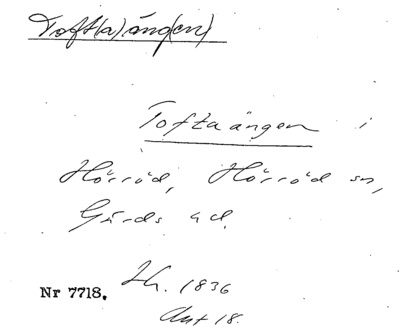 Toft(a)äng(en)
Toftaängen i
Hörröd, Hörröd sn,
Gärds hd.
Nr 7718. Lh. 1836
Akt 18.